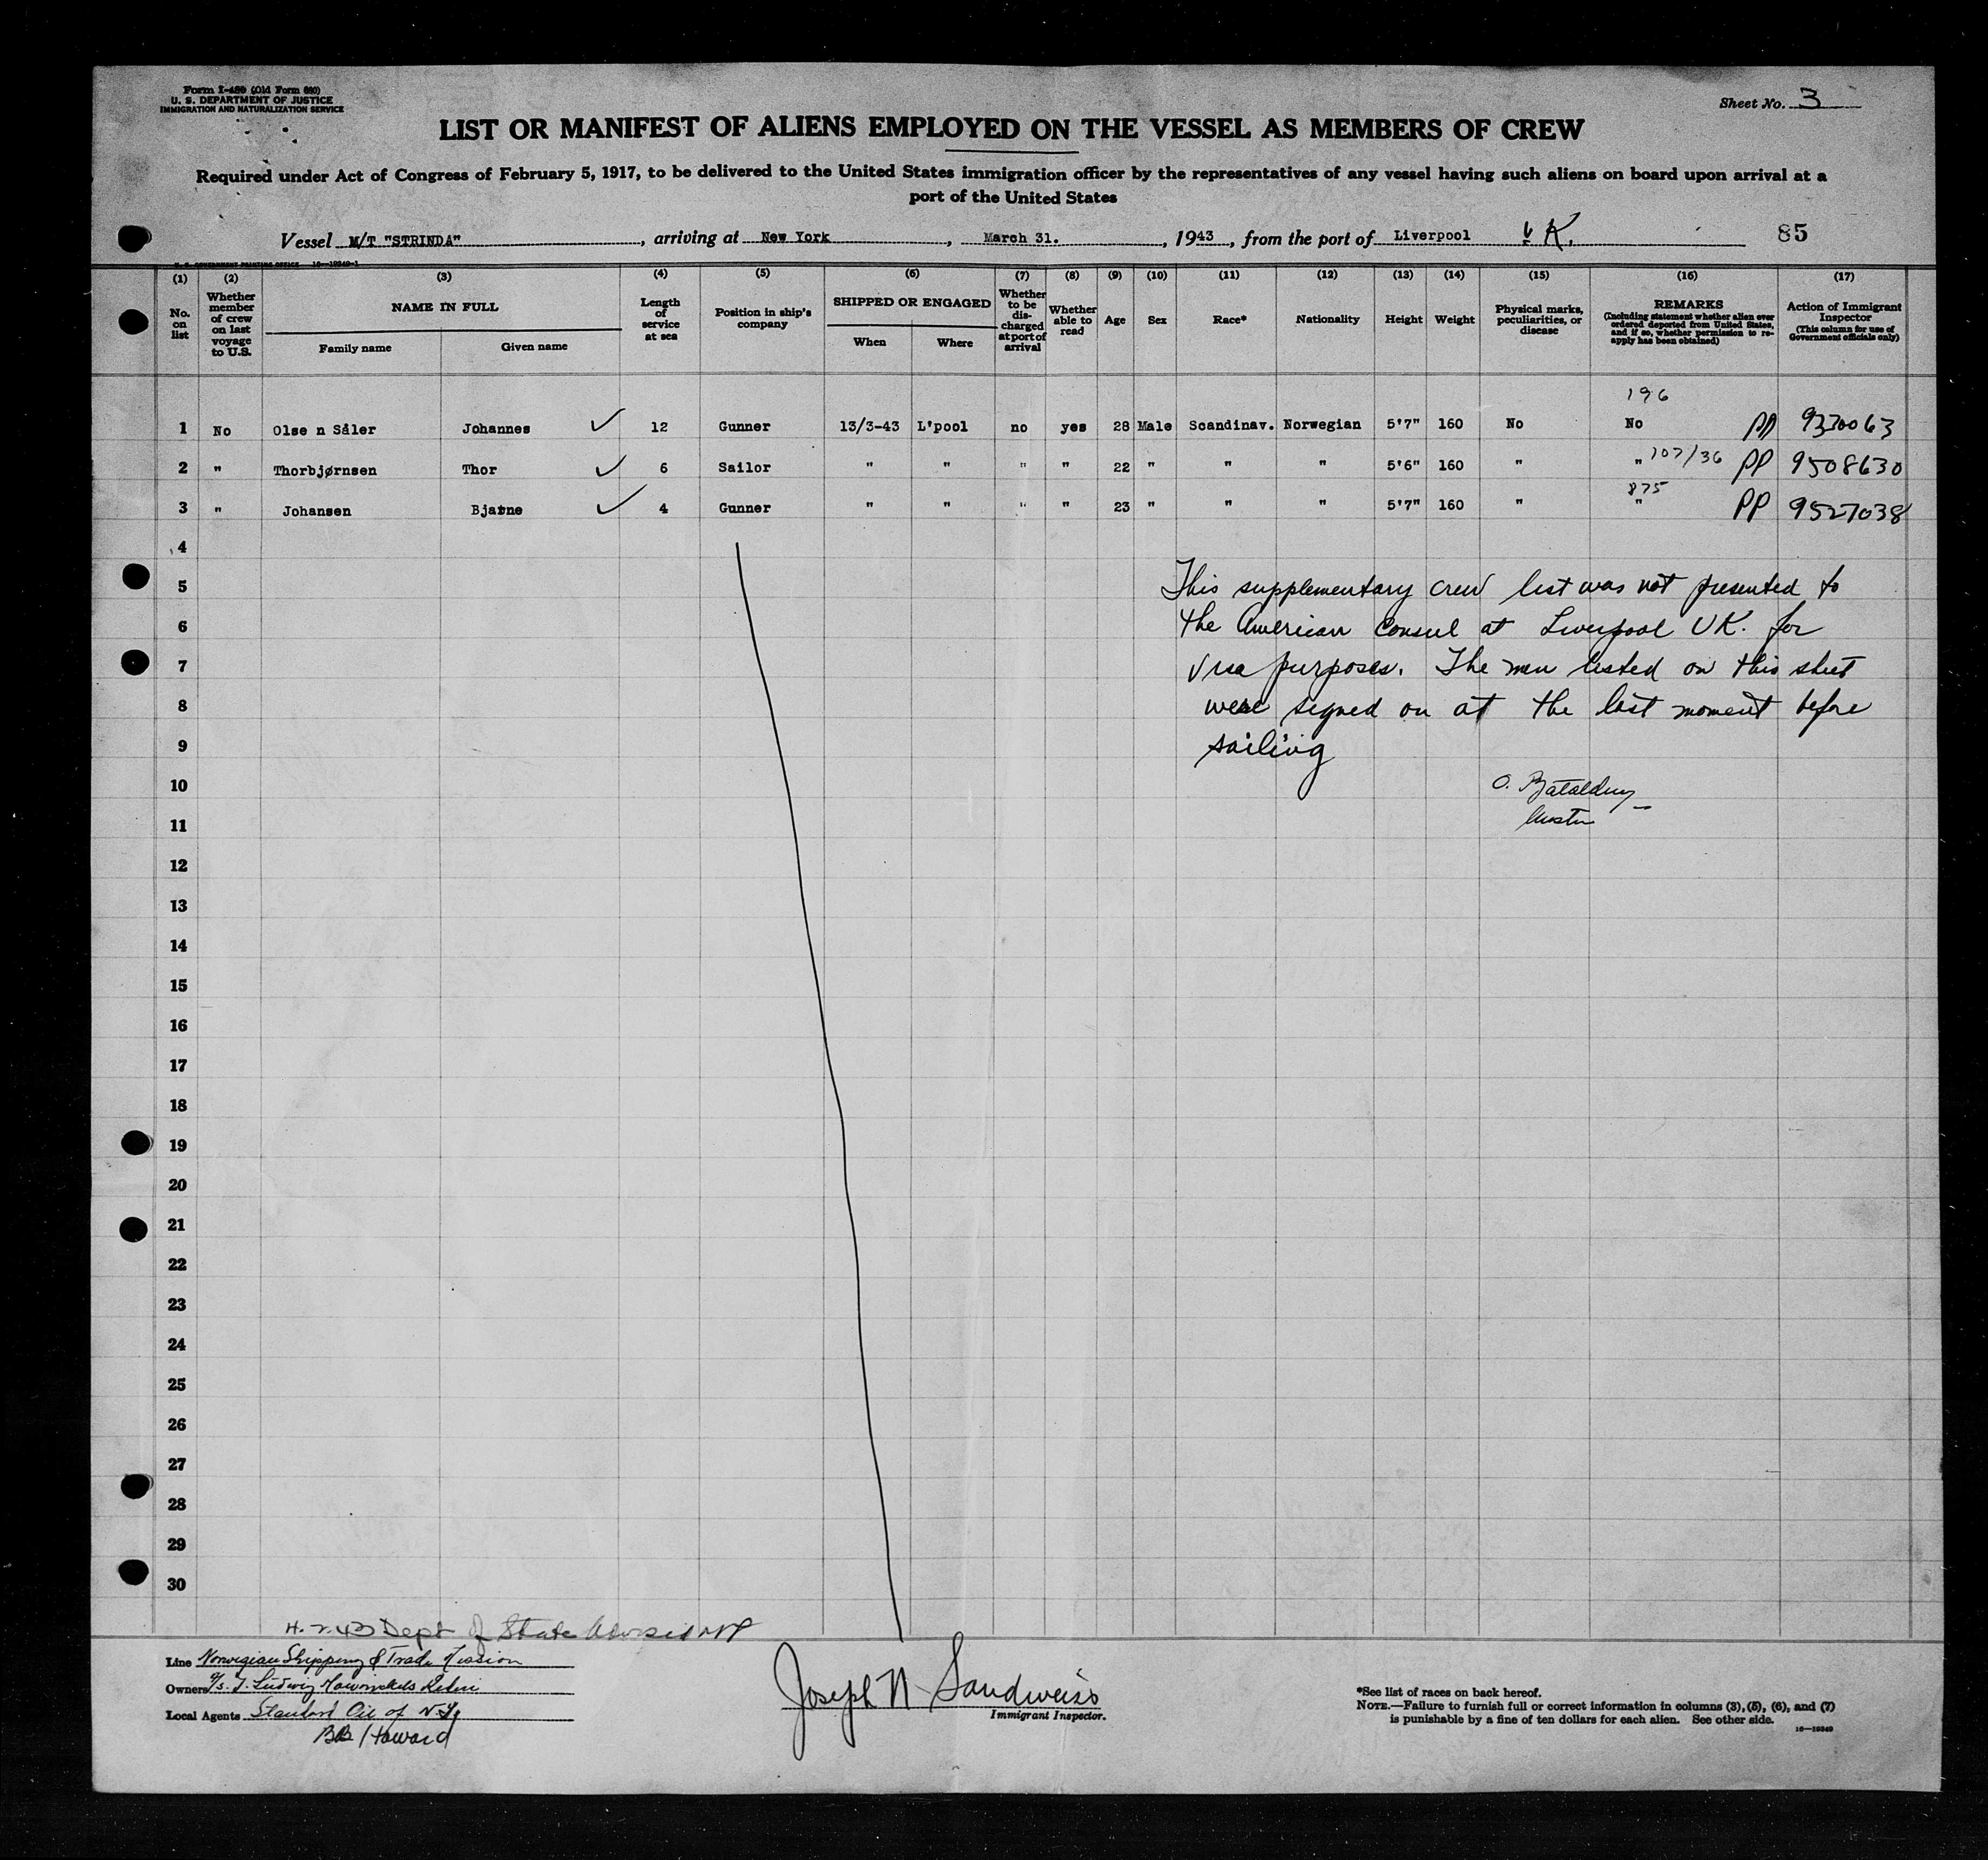 Form I-480 (Old Form 680)
U. S. DEPARTMENT OF JUSTICE
IMMIGRATION AND NATURALIZATION SERVICE
Sheet No. 3
LIST OR MANIFEST OF ALIENS EMPLOYED ON THE VESSEL AS MEMBERS OF CREW
Required under Act of Congress of February 5, 1917, to be delivered to the United States immigration officer by the representatives of any vessel having such aliens on board upon arrival at a
port of the United States
Vessel M/T "STRINDA", arriving at New York, March 31., 1943, from the port of Liverpool UK. 85
U. S. GOVERNMENT PRINTING OFFICE 16—19349-1
(1) (2) (3) (4) (5) (6) (7) (8) (9) (10) (11) (12) (13) (14) (15) (16) (17)
No. on list
Whether member of crew on last voyage to U.S.
NAME IN FULL
Family name Given name
Length of service at sea
Position in ship's company
SHIPPED OR ENGAGED
When Where
Whether to be discharged at port of arrival
Whether able to read
Age
Sex
Race*
Nationality
Height
Weight
Physical marks, peculiarities, or disease
REMARKS
(Including statement whether alien ever ordered deported from United States, and if so, whether permission to reapply has been obtained)
Action of Immigrant Inspector
(This column for use of Government officials only)
196
1 No Olse n Såler Johannes ✓ 12 Gunner 13/3-43 L'pool no yes 28 Male Scandinav. Norwegian 5'7" 160 No No PP 9330063
2 " Thorbjørnsen Thor ✓ 6 Sailor " " " " 22 " " " 5'6" 160 " " 107/36 PP 9508630
875
3 " Johansen Bjarne ✓ 4 Gunner " " " " 23 " " " 5'7" 160 " " PP 9527038
4
5
6
7
8
9
10
11
12
13
14
15
16
17
18
19
20
21
22
23
24
25
26
27
28
29
30
This supplementary crew list was not presented to
the American Consul at Liverpool UK. for
visa purposes. The men listed on this sheet
were signed on at the last moment before
sailing
O.
Master
Dept of State
Line Norwegian Shipping & Trade Mission
Owners Ludwig Mowinckels Rederi
Local Agents Standard Oil of N.Y.
BB Howard
Joseph N Sandweiss
Immigrant Inspector.
*See list of races on back hereof.
NOTE.—Failure to furnish full or correct information in columns (3), (5), (6), and (7)
is punishable by a fine of ten dollars for each alien. See other side.
16—19349